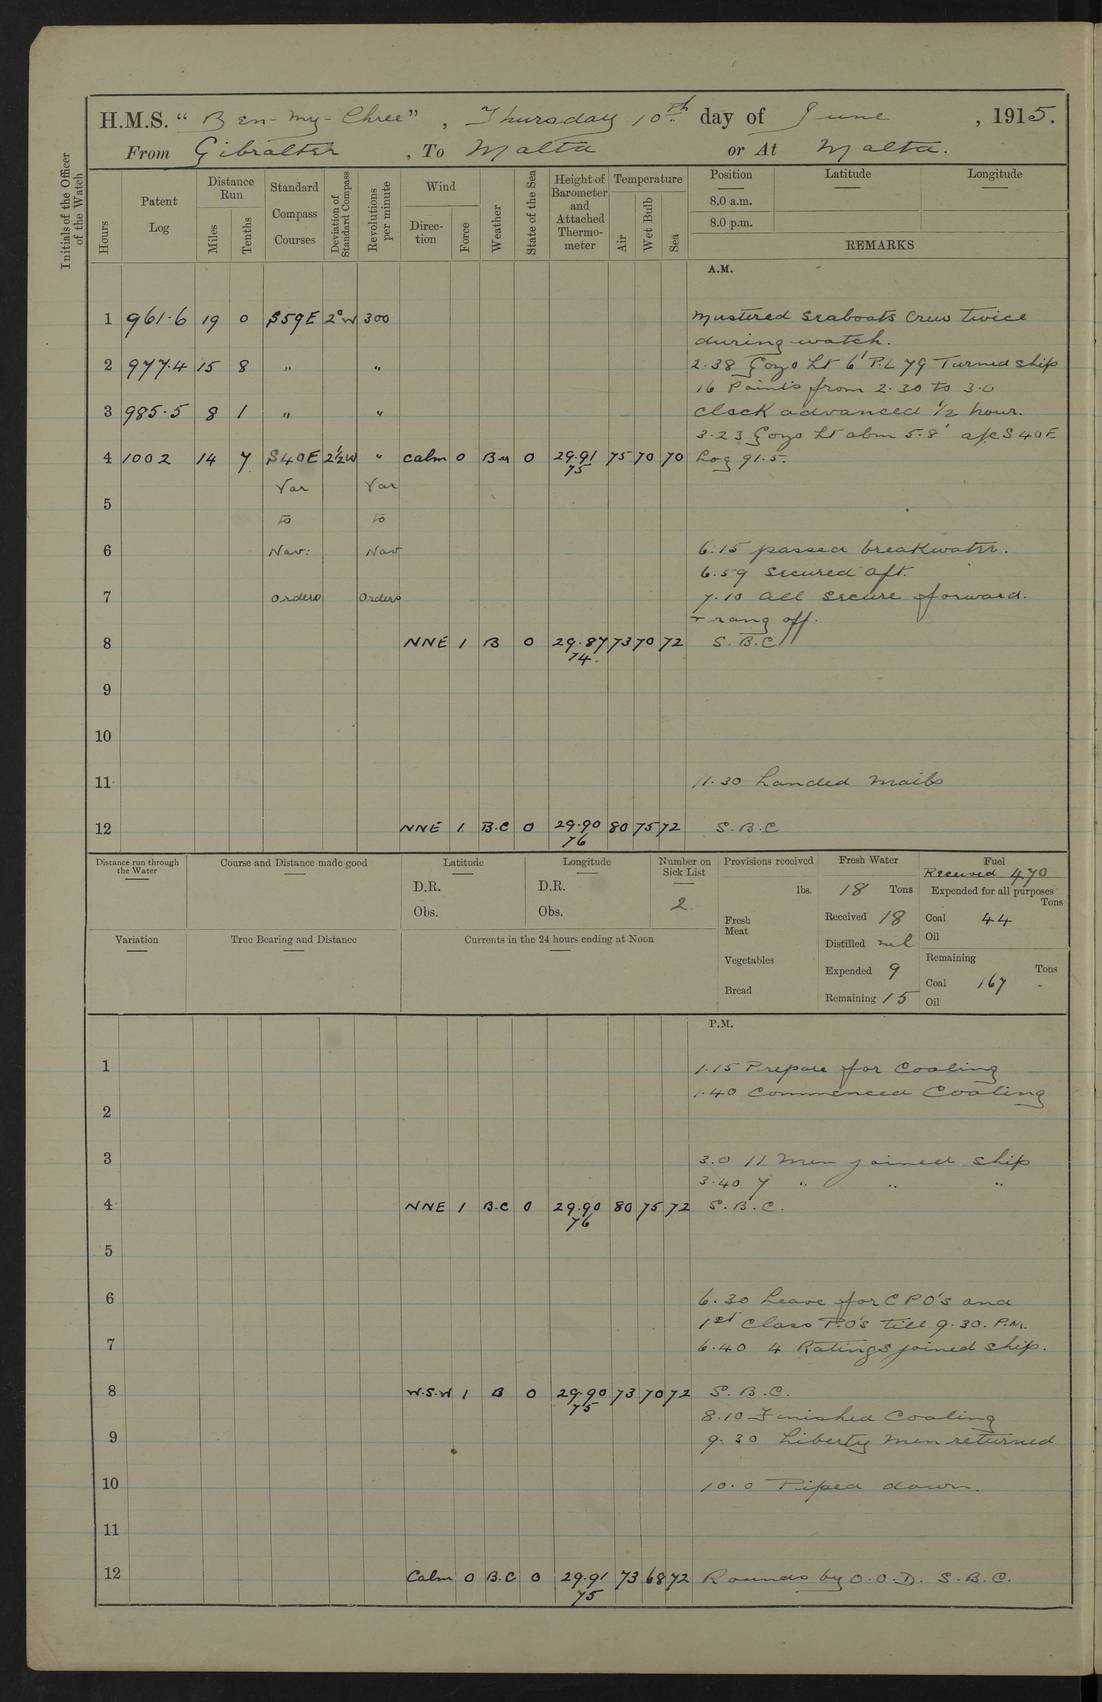 Initials of the Officer of the Watch
H.M.S. "Ben-my-Chree", Thursday 10th day of June, 1915.
From Gibralter, To Malta or At Malta.
Hours
Patent Log
Distance Run
Miles
Tenths
Standard Compass Courses
Deviation of Standard Compass
Revolutions per minute
Wind
Direction
Force
Weather
State of the Sea
Height of Barometer and Attached Thermometer
Temperature
Air
Wet Bulb
Sea
Position Latitude Longitude
8.0 a.m.
8.0 p.m.
REMARKS
A.M.
1 961.6 19 0 S59E 2°W 300 Mustered Seaboats Crew twice
during watch.
2 977.4 15 8 " " 2.38 Gozo Lt 6' P.L 79 Turned Ship
16 Points from 2.30 to 3.0
3 985.5 8 1 " " Clock advanced ½ hour.
3.23 Gozo Lt abm 5.8' a/c S40E
4 1002 14 7 S40E 2½W " Calm 0 0 29.91 75 70 70 Log 91.5.
75
Var Var
5
to to
6 Nav: Nav 6.15 passed breakwater.
6.59 Secured aft.
7 Orders Orders 7.10 all secure forward.
+ rang off.
8 NNE 1 B 0 29.87 73 70 72 S.B.C
74.
9
10
11 11.30 Landed Mails
12 NNE 1 B.C 0 29.90 80 75 72 S.B.C
76
Distance run through the Water
Course and Distance made good
Latitude
D.R.
Obs.
Longitude
D.R.
Obs.
Number on Sick List
2
Provisions received
lbs.
Fresh Meat
Vegetables
Bread
Fresh Water
18 Tons
Received 18
Distilled nil
Expended 9
Remaining 15
Fuel
Received 470
Expended for all purposes
Tons
Coal 44
Oil
Remaining
Tons
Coal 167
Oil
Variation
True Bearing and Distance
Currents in the 24 hours ending at Noon
P.M.
1 1.15 Prepare for Coaling
1.40 Commenced Coaling
2
3 3.0 11 Men joined ship
3.40 7 " " "
4 NNE 1 B.C 0 29.90 80 75 72 S.B.C.
76
5
6 6.30 Leave for CPO's and
1st Class P.O's till 9.30. P.M.
7 6.40 4 Ratings joined ship.
8 W.S.W 1 B 0 29.90 73 70 72 S.B.C.
75
8.10 Finished Coaling
9 9.30 Liberty Men returned
10 10.0 Piped down.
11
12 Calm 0 B.C 0 29.91 73 68 72 Rounds by O.O.D. S.B.C.
75